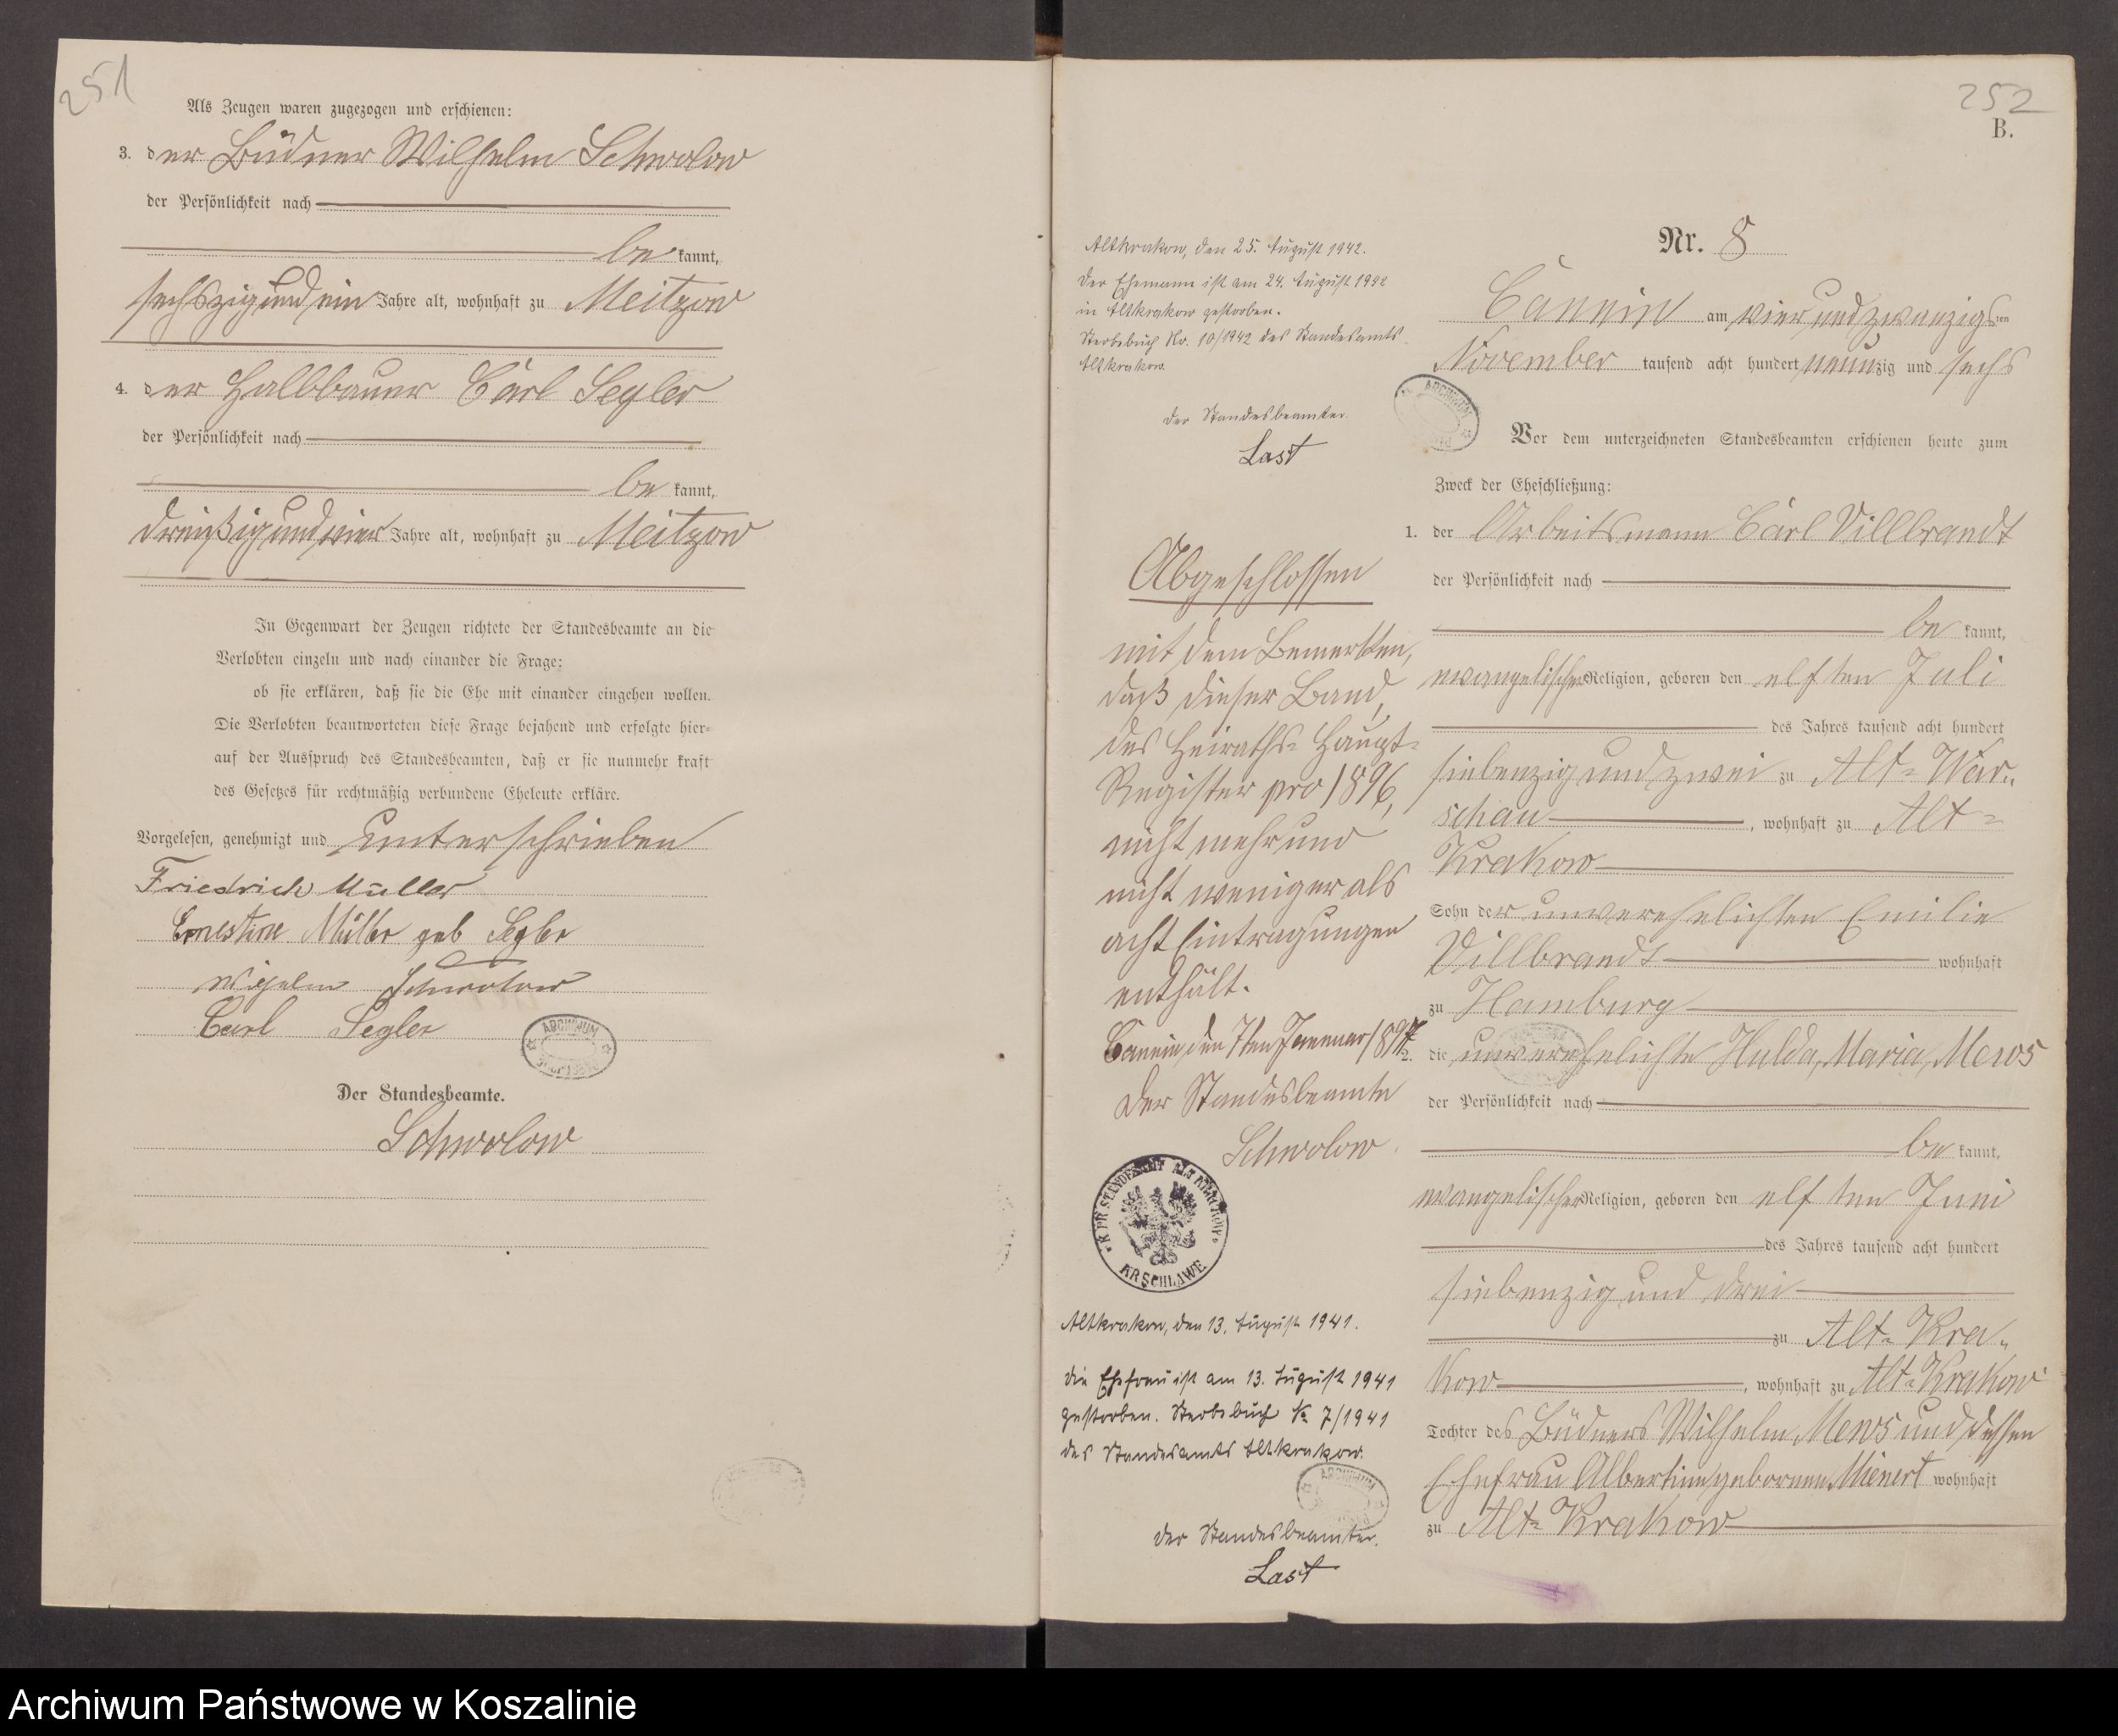 251
Als Zeugen waren zugezogen und erschienen:
3. der Büdner Wilhelm Schwolow
der Persönlichkeit nach
be kannt,
sechszig und ein Jahre alt, wohnhaft zu Meitzow
4. der Halbbauer Carl Segler
der Persönlichkeit nach
be kannt,
dreißig und vier Jahre alt, wohnhaft zu Meitzow
In Gegenwart der Zeugen richtete der Standesbeamte an die
Verlobten einzeln und nach einander die Frage:
ob sie erklären, daß sie die Ehe mit einander eingehen wollen.
Die Verlobten beantworteten diese Frage bejahend und erfolgte hier-
auf der Ausspruch des Standesbeamten, daß er sie nunmehr kraft
des Gesetzes für rechtmäßig verbundene Eheleute erkläre.
Vorgelesen, genehmigt und unterschrieben
Friedrich Müller
Ernestine Müller geb Segler
Wilhelm Schwolow
Carl Segler
ARCHIWUM
Der Standesbeamte.
Schwolow
252
B.
Altkrakow, den 25. August 1942.
Der Ehemann ist am 24. August 1942
in Altkrakow gestorben.
Sterbebuch Nr. 10/1942 des Standesamts
Altkrakow.
Der Standesbeamter.
Last
Abgeschlossen
mit dem Bemerken,
daß dieser Band,
des Heiraths-Haupt-
Register pro 1896,
nicht mehr und
nicht weniger als
acht Eintragungen
enthält.
Cannin, den 7ten Januar 1897
Der Standesbeamte
Schwolow
K. PR. STANDESAMT ALT KRAKOW
KR SCHLAWE
Altkrakow, den 13. August 1941.
Die Ehefrau ist am 13. August 1941
gestorben. Sterbebuch Nr. 7/1941
des Standesamts Altkrakow.
ARCHIWUM
Der Standesbeamter.
Last
Nr. 8
Cannin am vier und zwanzigsten
November tausend acht hundert neunzig und sechs
ARCHIWUM
Vor dem unterzeichneten Standesbeamten erschienen heute zum
Zweck der Eheschließung:
1. der Arbeitsmann Carl Villbrandt
der Persönlichkeit nach
be kannt,
evangelischer Religion, geboren den elften Juli
des Jahres tausend acht hundert
siebenzig und zwei zu Alt-War-
schau, wohnhaft zu Alt-
Krakow
Sohn der unverehelichten Emilie
Villbrandt wohnhaft
zu Hamburg
2. die unverehelichte Hulda, Maria, Mews
der Persönlichkeit nach
be kannt,
evangelischer Religion, geboren den elften Juni
des Jahres tausend acht hundert
siebenzig und drei
zu Alt-Kra-
kow, wohnhaft zu Alt-Krakow
Tochter des Büdners Wilhelm Mews und dessen
Ehefrau Albertine geborenen Mienert wohnhaft
zu Alt-Krakow
Archiwum Państwowe w Koszalinie